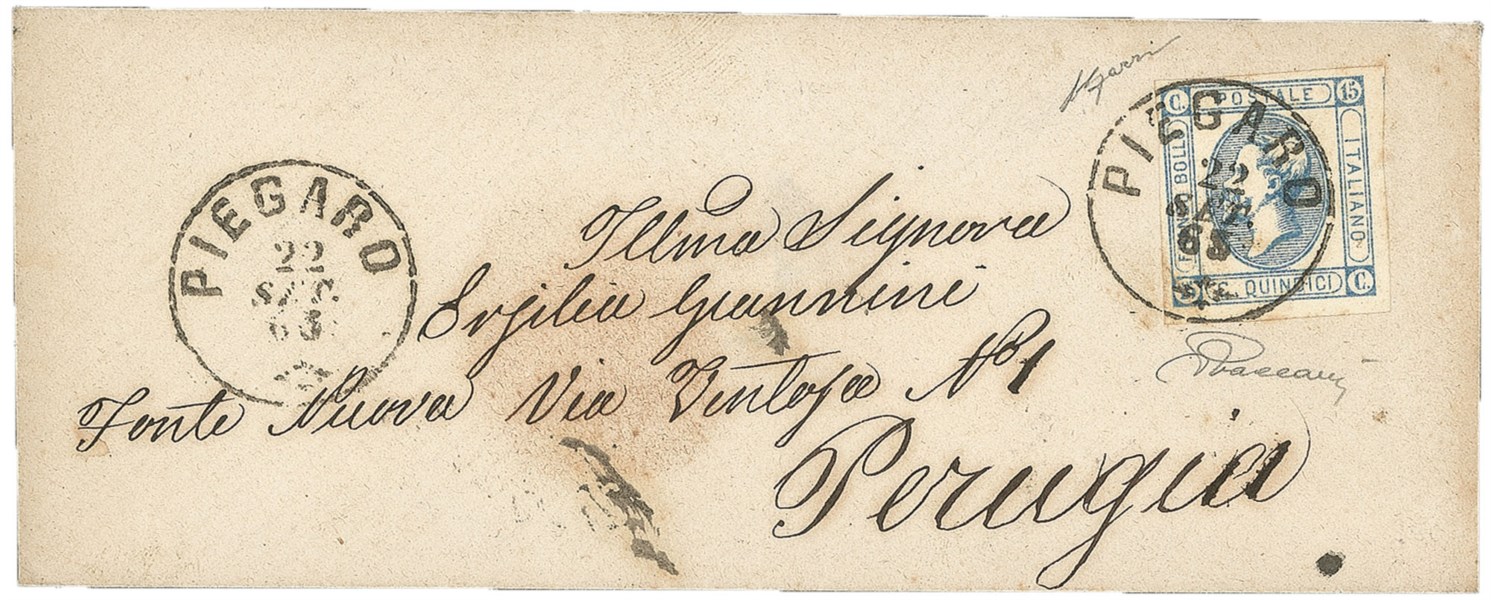 PIEGARO
22
SET.
63
C. POSTALE 15
FRANCO BOLLO
ITALIANO
C. QUINDICI C.
PIEGARO
22
SET.
63
Illma Signora
Ersilia Giannini
Fonte Nuova Via Ventosa No 1
Perugia